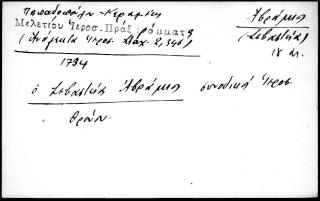 Παπαδοπούλου-Κεραμέως
Μελετίου Ἱεροσ. Πρᾶξ γράμματα
(Ἀνάλεκτα Ἱεροσ. Σταχ. 2,396)
Ἀβράμιος
(Σεβαστείας)
18 αι.
1734
ὁ Σεβαστείας Ἀβράμιος συνοδικῇ Ἱεροσ.
Θρόν.